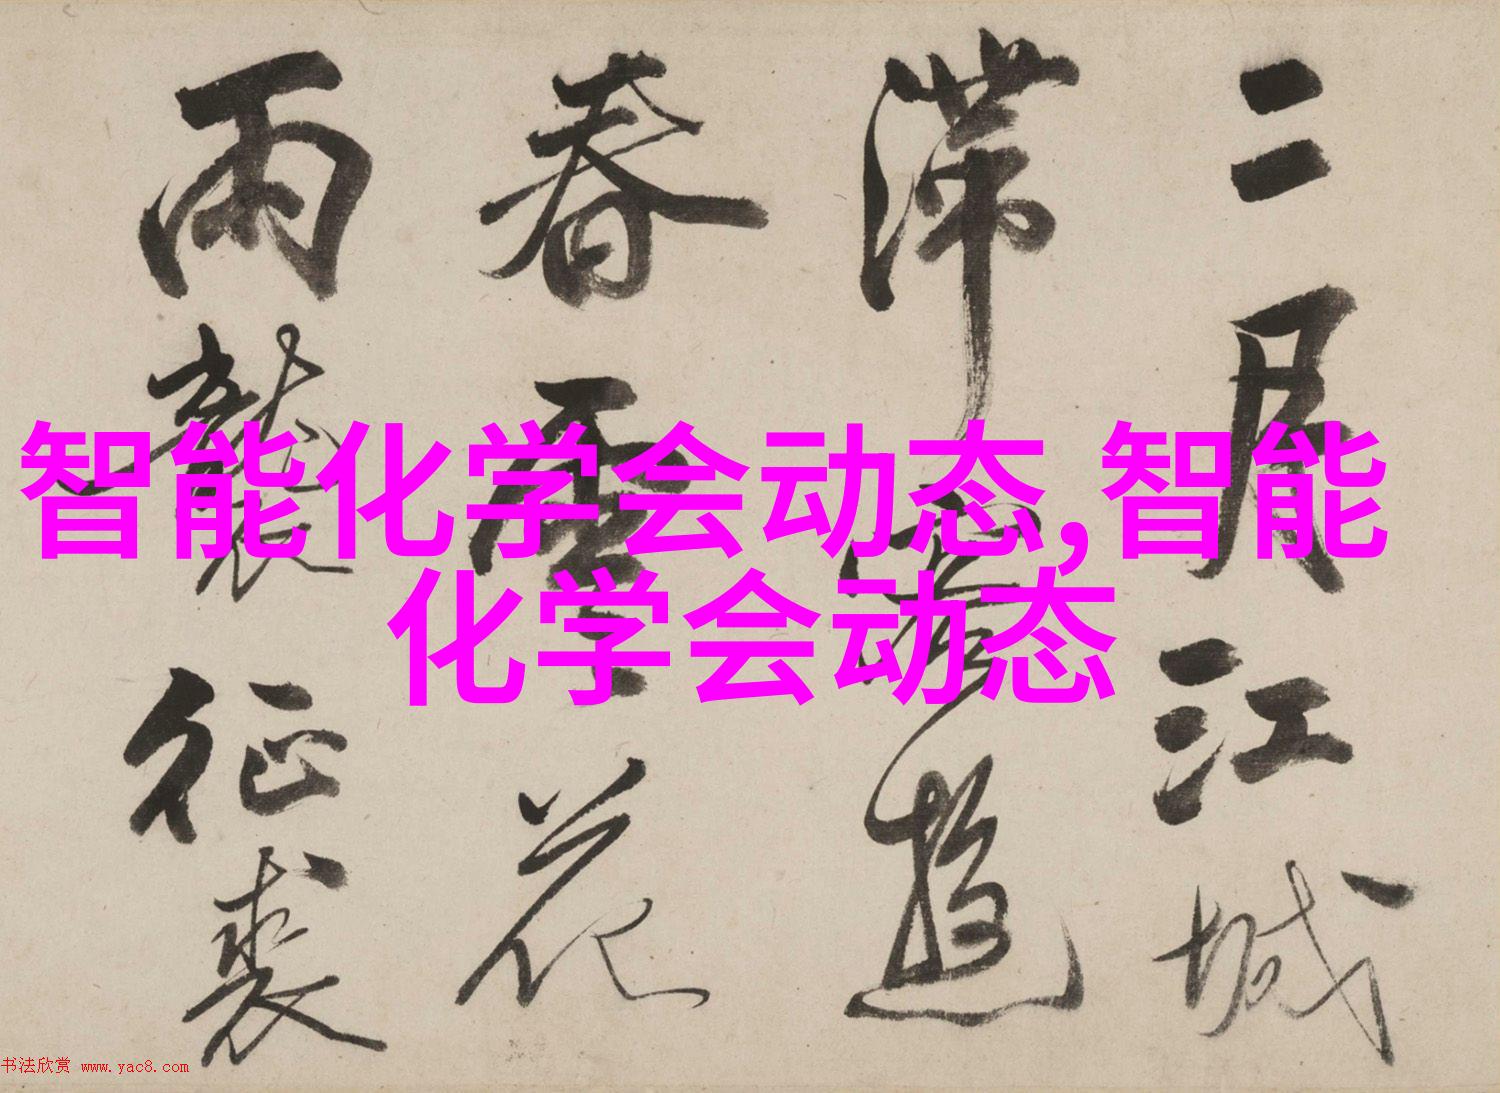 二月江城
滞遊
春花
雨襲征裘
智能化学会动态,智能
化学会动态
书法欣赏 www.yac8.com